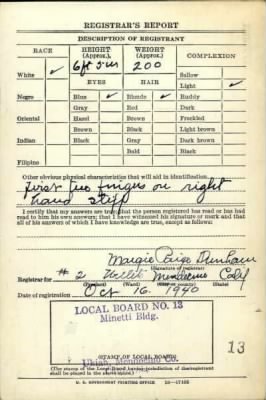 REGISTRAR'S REPORT
DESCRIPTION OF REGISTRANT
RACE HEIGHT (Approx.) WEIGHT (Approx.) COMPLEXION
6 ft 5 in 200
White ✓ Sallow
EYES HAIR Light ✓
Negro Blue ✓ Blonde ✓ Ruddy
Gray Red Dark
Oriental Hazel Brown Freckled
Brown Black Light brown
Indian Black Gray Dark brown
Bald Black
Filipino
Other obvious physical characteristics that will aid in identification
first two fingers on right
hand stiff
I certify that my answers are true; that the person registered has read or has
had read to him his own answers; that I have witnessed his signature or mark and that
all of his answers of which I have knowledge are true, except as follows:
Margie Paige Dunham
(Signature of registrar)
Registrar for # 2 Mendocino Calif
(Precinct) (Ward) (State)
Date of registration Oct 16 1940
LOCAL BOARD NO. 13
Minetti Bldg.
Ukiah, Mendocino Co.
13
(STAMP OF LOCAL BOARD)
(The stamp of the Local Board having jurisdiction of the registrant
shall be placed in the above space.)
U. S. GOVERNMENT PRINTING OFFICE 16—17105